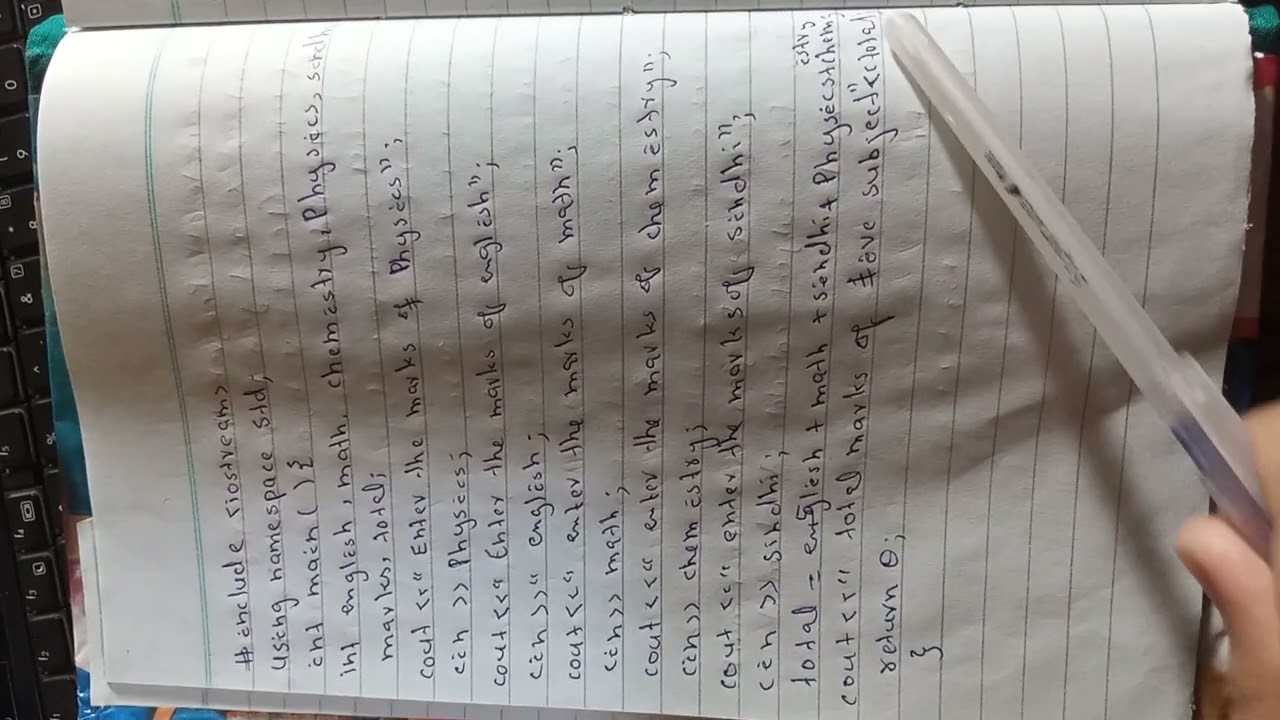 #include <iostream>
using namespace std;
int main ( ) {
int english, math, chemistry, Physics, sindh
marks, total;
cout << " Enter the marks of Physics";
cin >> Physics;
cout << " Enter the marks of english";
cin >> " english;
cout << " enter the marks of math";
cin >> math;
cout << " enter the marks of chemistry";
cin >> chemistry;
cout << " enter the marks of sindhi";
cin >> sindhi;
total = english + math + sindhi + Physics + chemistry
cout << " total marks of #ive subject" << total;
return 0;
}